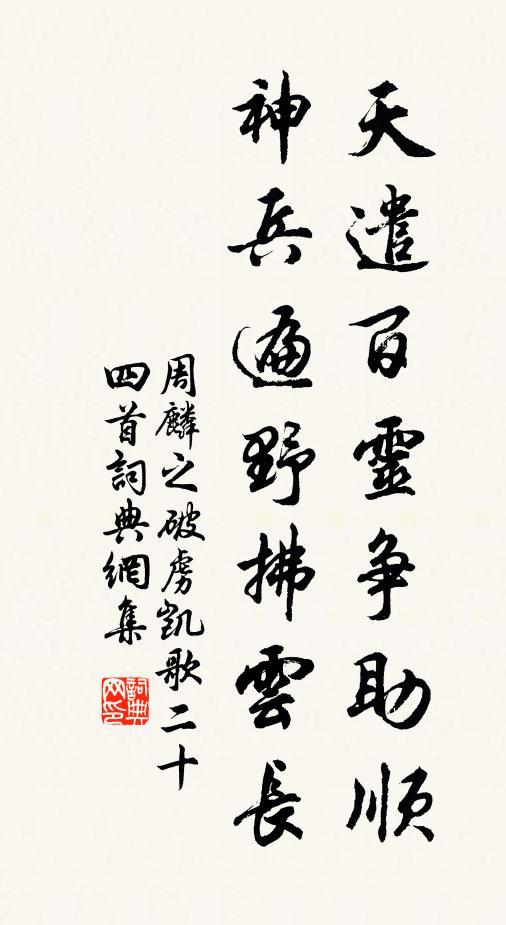 天遣百靈争助順
神兵遍野拂雲長
周麟之破虜凱歌二十
四首詞典網集
詞典
网印